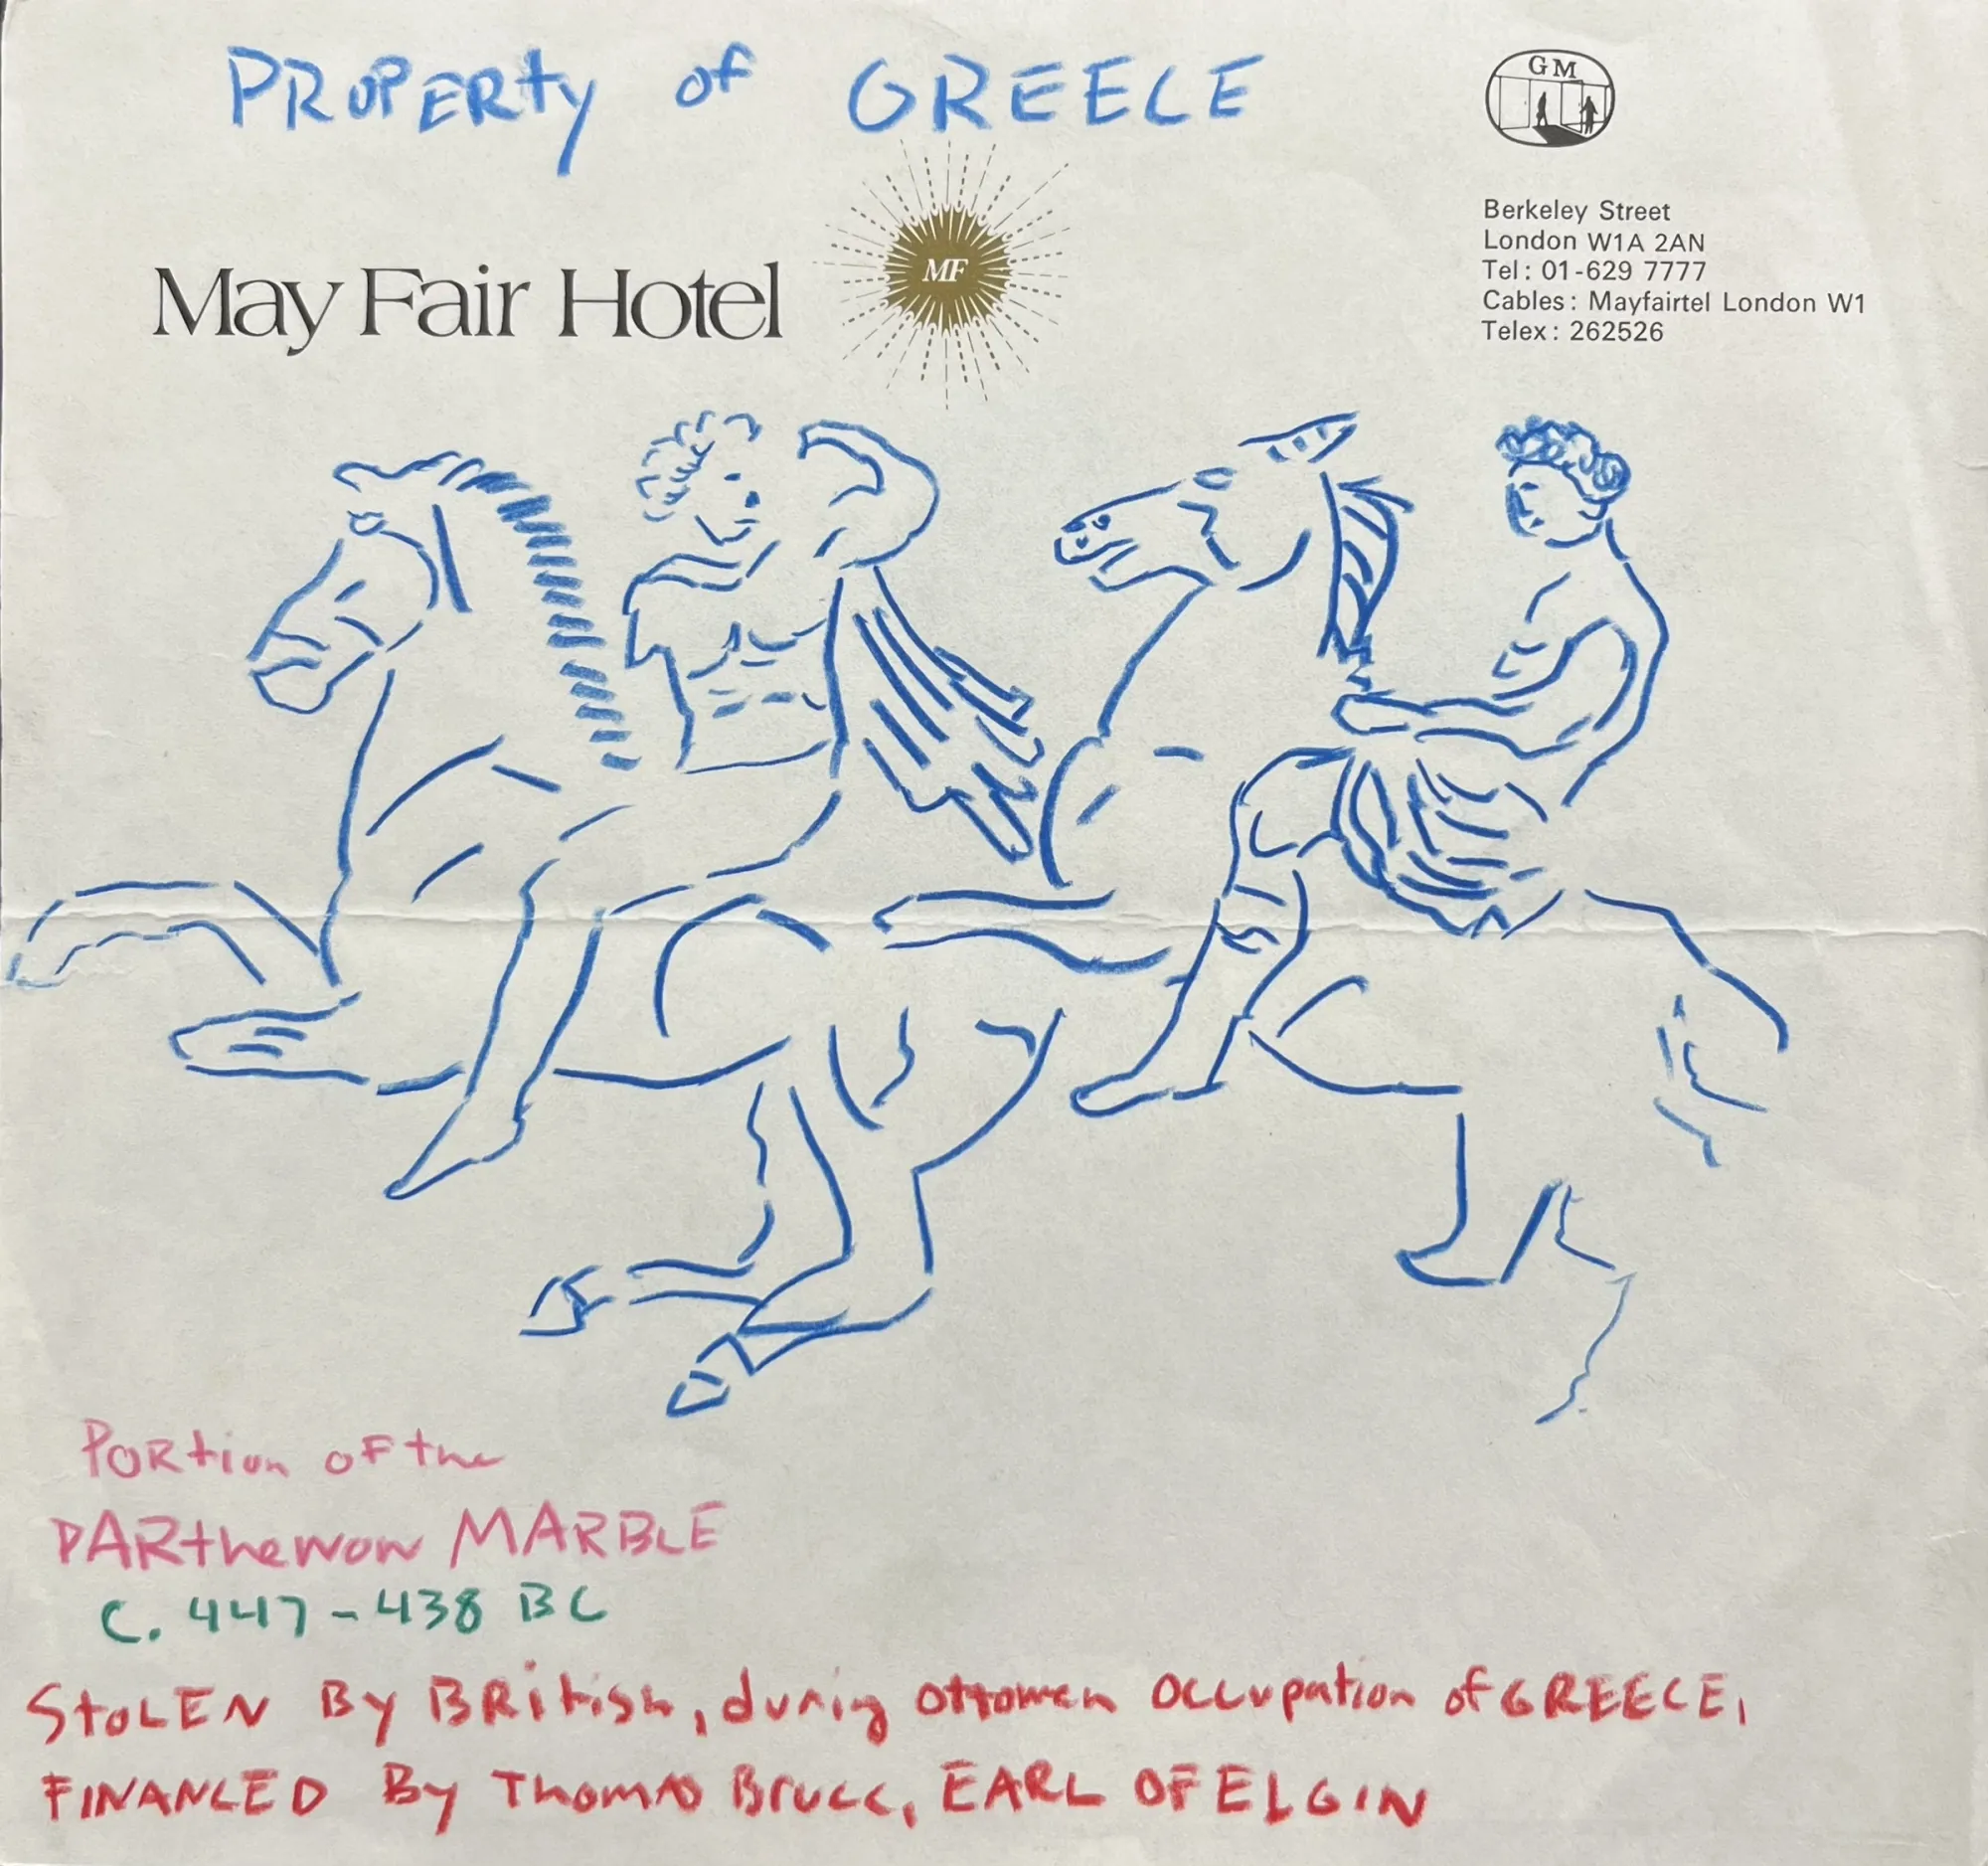 PROPERty of GREECE
GM
Berkeley Street
London W1A 2AN
Tel: 01-629 7777
Cables: Mayfairtel London W1
Telex: 262526
May Fair Hotel
MF
PORtion OF the
PARthenon MARBLE
C. 447-438 BC
StOLEN By BRitish, during Ottoman Occupation of GREECE,
FINANCED By Thomas Bruce, EARL OF ELGIN